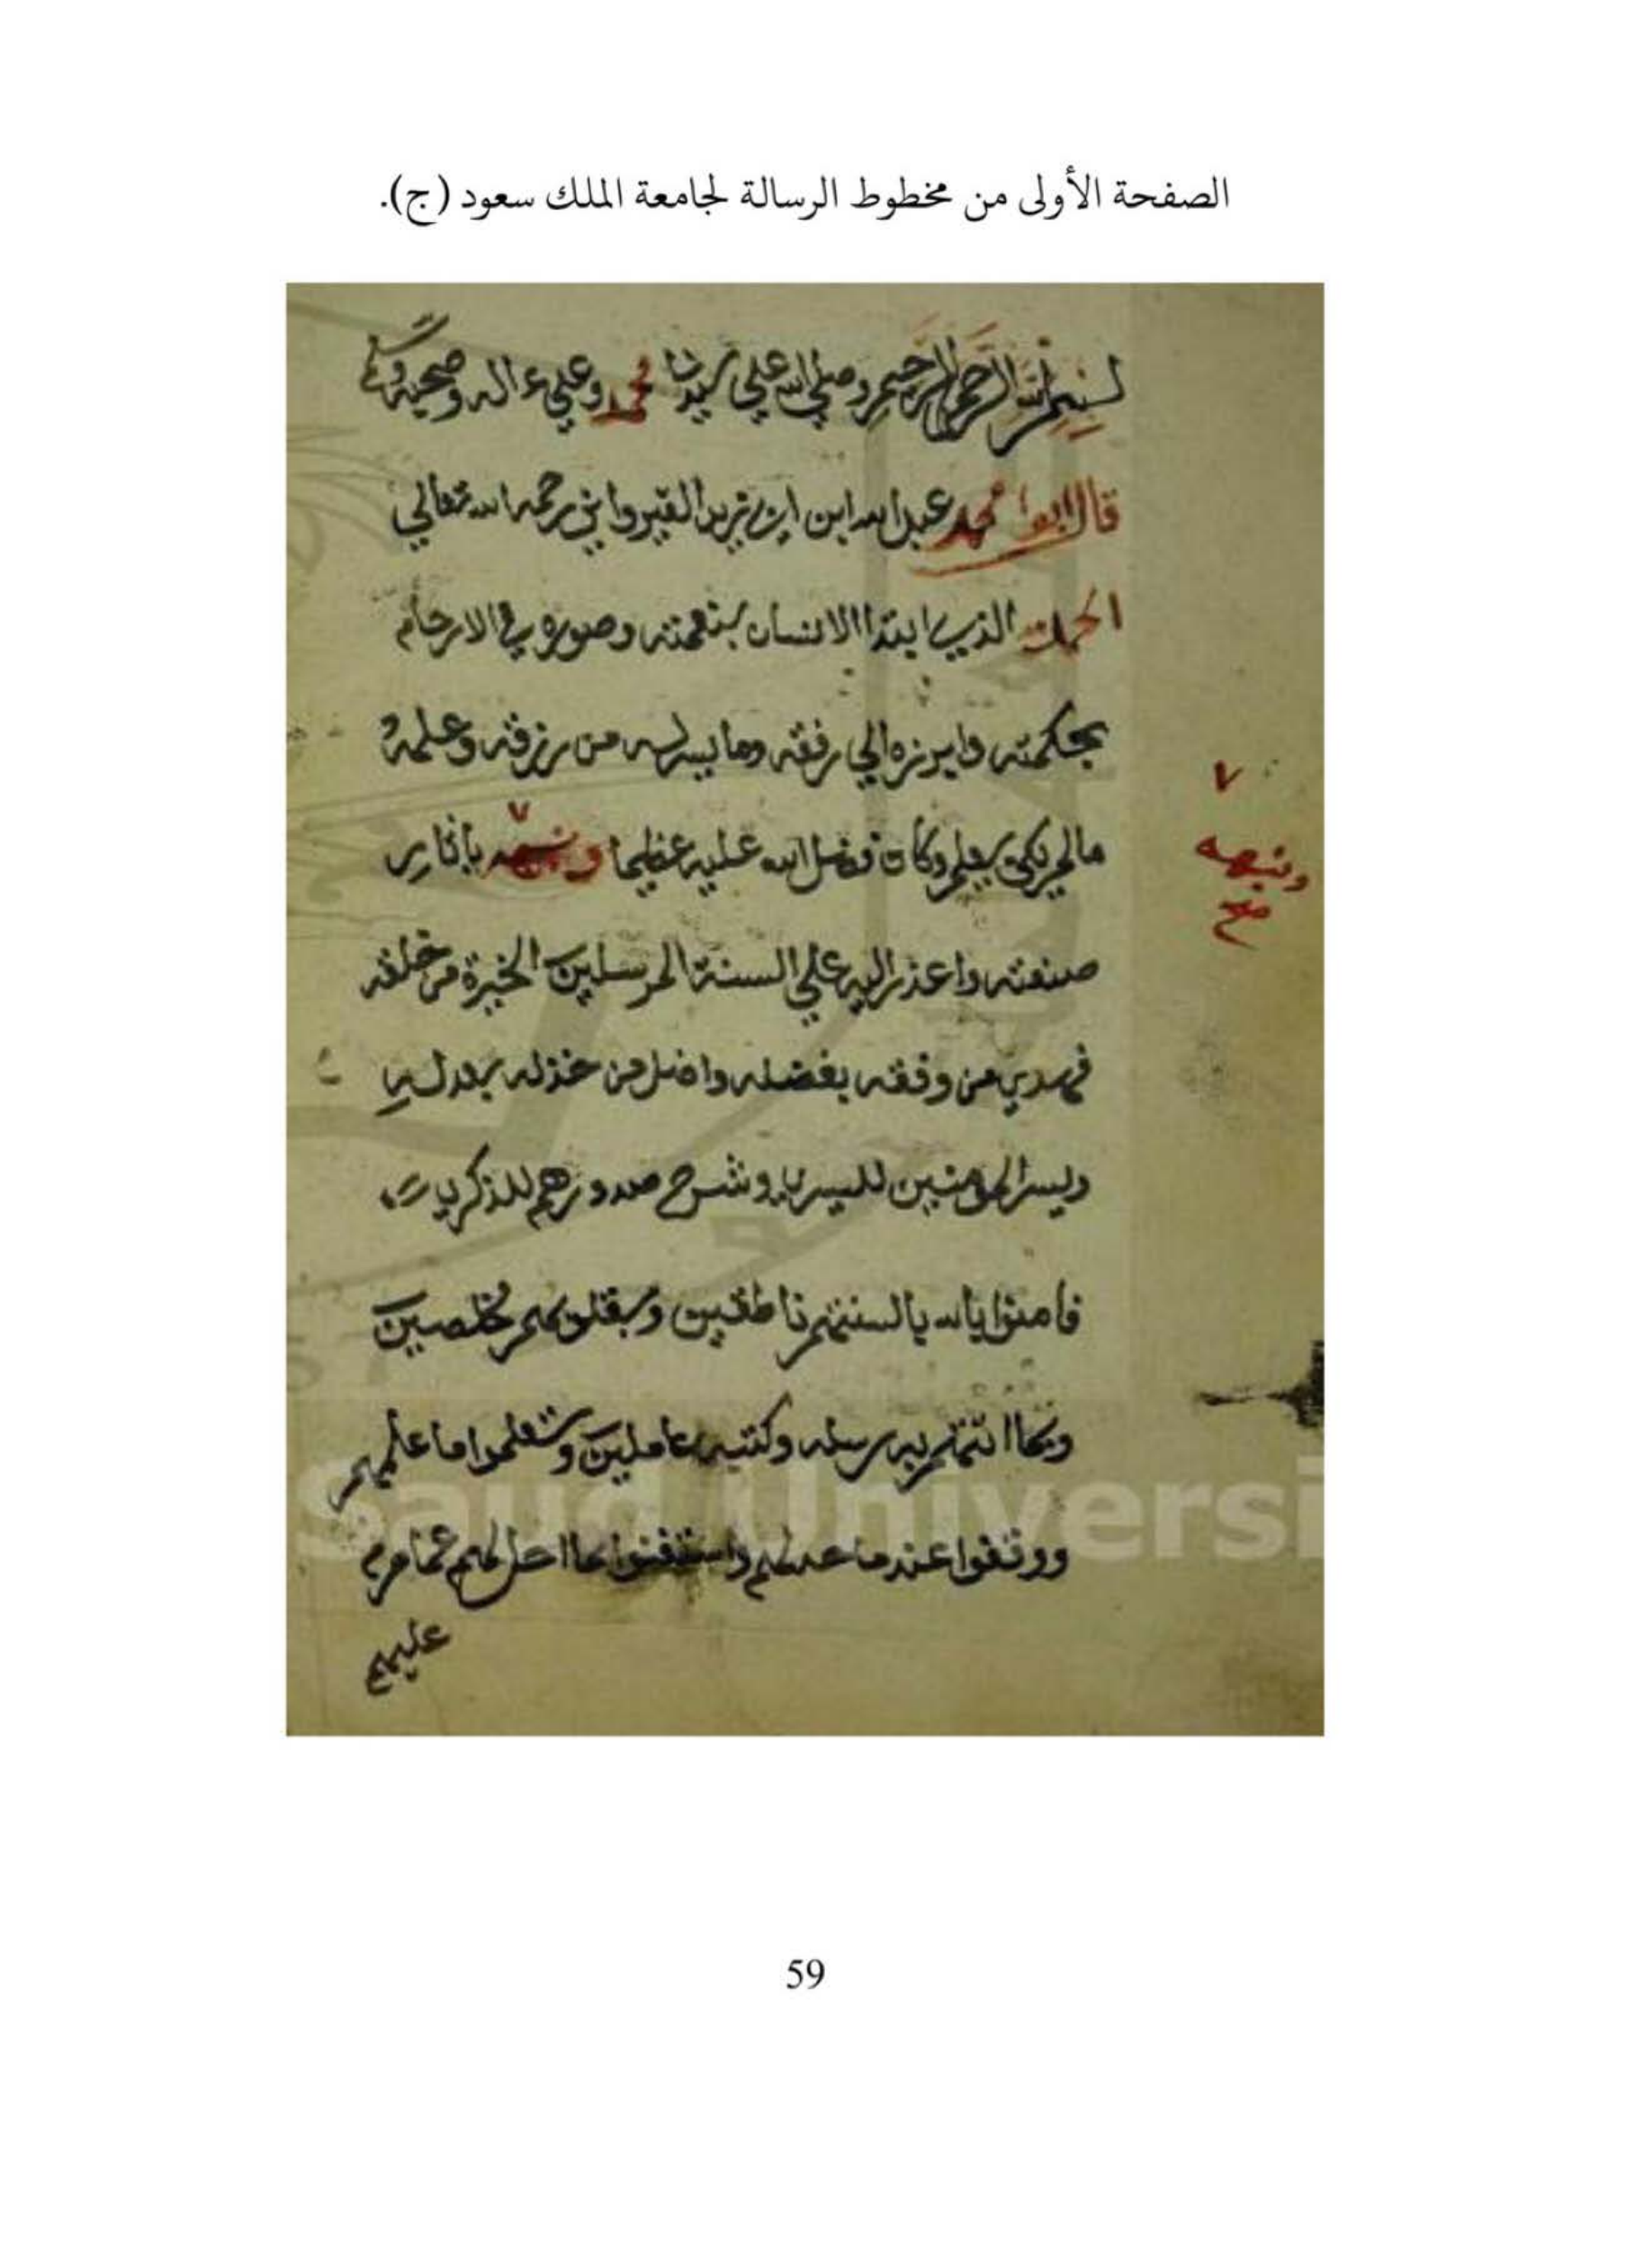 الصفحة الأولى من مخطوط الرسالة لجامعة الملك سعود (ج).
بسم الله الرحمن الرحيم وصلي الله علي سيدنا محمد وعلي ءاله وصحبه
قال ابوا محمد عبد الله ابن ابي زيد القيرواني رحمه الله تعالي
الحمد لله الذي ابتدا الانسان بنعمته وصوره في الارحام
بحكمته وابرزه الي رفقه وما يسر له من رزقه وعلمه
مالم يكن يعلم وكان فضل الله عليه عظيما ونبهه باثار
ونبهه
صح
صنعته واعذر اليه علي السنة المرسلين الخيرة من خلقه
فهدي من وفقه بفضله واضل من خذله بعدله
ويسر المومنين لليسري وشرح صدورهم للذكري
فامنوا بالله بالسنتهم ناطقين وبقلوبهم مخلصين
وبما اتتهم به رسله وكتبه عاملين وتعلموا ما علمهم
ووقفوا عند ما حد لهم واستغنوا بما احل لهم عما حرم
عليهم
Saud Universi
59